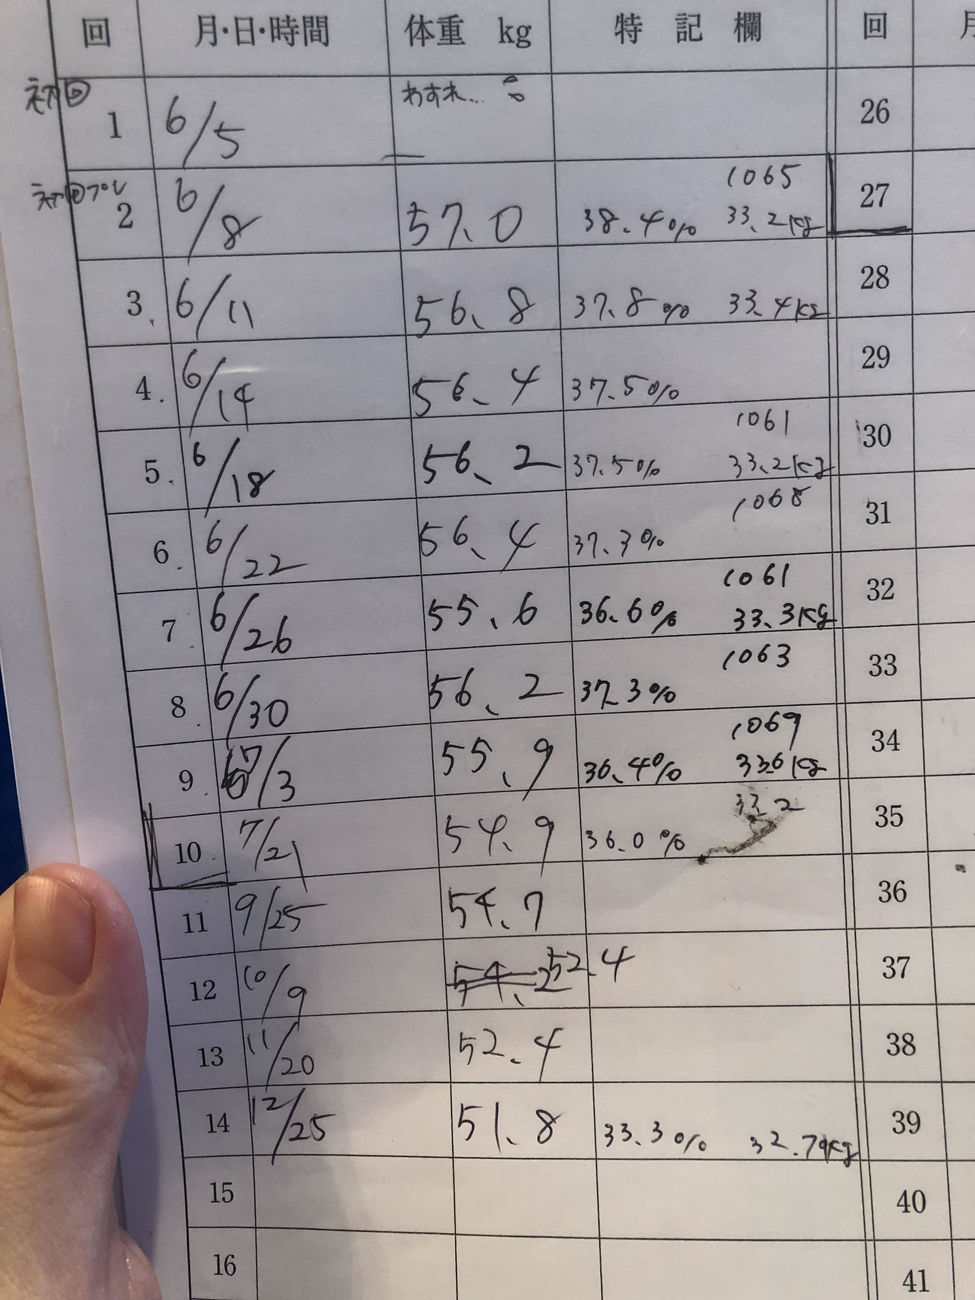 回 月・日・時間 体重 kg 特記欄 回 月
初回 1 6/5 わすれ… 26
初回プレ 2 6/8 57.0 38.4% 1065 33.2kg 27
3. 6/11 56.8 37.8% 33.4kg 28
4. 6/14 56.4 37.5% 29
5. 6/18 56.2 37.5% 1061 33.2kg 30
6. 6/22 56.4 37.3% 1068 31
7 6/26 55.6 36.6% 1061 33.3kg 32
8. 6/30 56.2 37.3% 1063 33
9. 7/3 55.9 36.4% 1069 33.6kg 34
10. 7/21 54.9 36.0% 33.2 35
11 9/25 54.7 36
12 10/9 54.2 52.4 37
13 11/20 52.4 38
14 12/25 51.8 33.3% 32.7kg 39
15 40
16 41